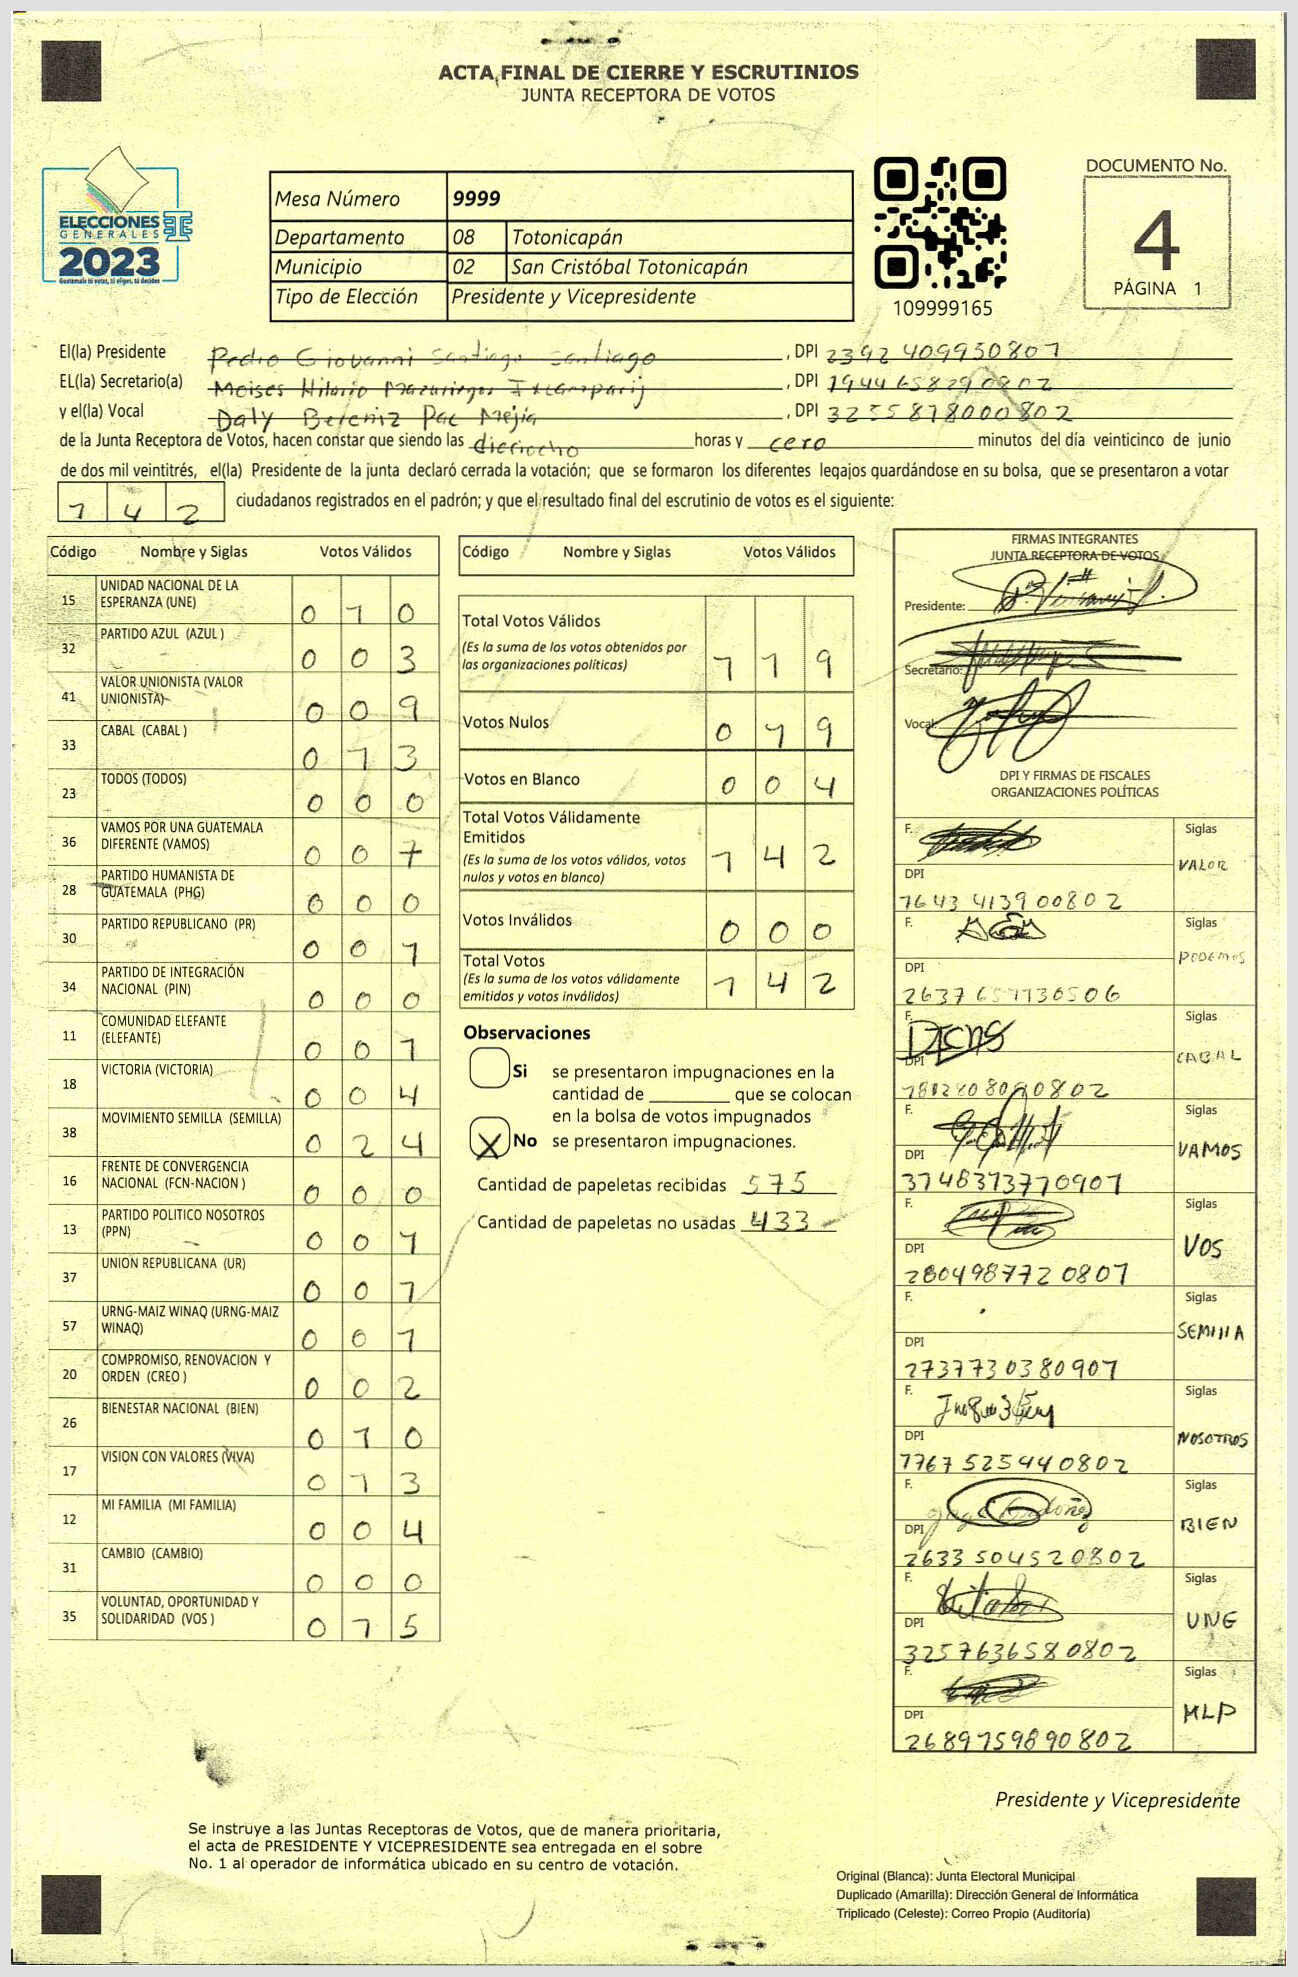 ACTA FINAL DE CIERRE Y ESCRUTINIOS
JUNTA RECEPTORA DE VOTOS
ELECCIONES
GENERALES
2023
Guatemala tú votas, tú eliges, tú decides
Mesa Número 9999
Departamento 08 Totonicapán
Municipio 02 San Cristóbal Totonicapán
Tipo de Elección Presidente y Vicepresidente
109999165
DOCUMENTO No.
4
PÁGINA 1
El(la) Presidente Pedro Giovanni Santiago Santiago , DPI 2392 409950801
EL(la) Secretario(a) Moises Hilario Mazariegos , DPI 1944658290802
y el(la) Vocal Daly Bereniz Pac Mejía , DPI 3255818000802
de la Junta Receptora de Votos, hacen constar que siendo las dieciocho horas y cero minutos del día veinticinco de junio
de dos mil veintitrés, el(la) Presidente de la junta declaró cerrada la votación; que se formaron los diferentes legajos quardándose en su bolsa, que se presentaron a votar
142 ciudadanos registrados en el padrón; y que el resultado final del escrutinio de votos es el siguiente:
Código Nombre y Siglas Votos Válidos
15 UNIDAD NACIONAL DE LA
ESPERANZA (UNE) 0 1 0
32 PARTIDO AZUL (AZUL ) 0 0 3
41 VALOR UNIONISTA (VALOR
UNIONISTA) 0 0 9
33 CABAL (CABAL ) 0 1 3
23 TODOS (TODOS) 0 0 0
36 VAMOS POR UNA GUATEMALA
DIFERENTE (VAMOS) 0 0 7
28 PARTIDO HUMANISTA DE
GUATEMALA (PHG) 0 0 0
30 PARTIDO REPUBLICANO (PR) 0 0 1
34 PARTIDO DE INTEGRACIÓN
NACIONAL (PIN) 0 0 0
11 COMUNIDAD ELEFANTE
(ELEFANTE) 0 0 1
18 VICTORIA (VICTORIA) 0 0 4
38 MOVIMIENTO SEMILLA (SEMILLA) 0 2 4
16 FRENTE DE CONVERGENCIA
NACIONAL (FCN-NACION ) 0 0 0
13 PARTIDO POLITICO NOSOTROS
(PPN) 0 0 1
37 UNION REPUBLICANA (UR) 0 0 1
57 URNG-MAIZ WINAQ (URNG-MAIZ
WINAQ) 0 0 1
20 COMPROMISO, RENOVACION Y
ORDEN (CREO ) 0 0 2
26 BIENESTAR NACIONAL (BIEN) 0 1 0
17 VISION CON VALORES (VIVA) 0 1 3
12 MI FAMILIA (MI FAMILIA) 0 0 4
31 CAMBIO (CAMBIO) 0 0 0
35 VOLUNTAD, OPORTUNIDAD Y
SOLIDARIDAD (VOS ) 0 1 5
Código Nombre y Siglas Votos Válidos
Total Votos Válidos
(Es la suma de los votos obtenidos por
las organizaciones políticas) 1 1 9
Votos Nulos 0 1 9
Votos en Blanco 0 0 4
Total Votos Válidamente
Emitidos
(Es la suma de los votos válidos, votos
nulos y votos en blanco) 1 4 2
Votos Inválidos 0 0 0
Total Votos
(Es la suma de los votos válidamente
emitidos y votos inválidos) 1 4 2
Observaciones
Si se presentaron impugnaciones en la
cantidad de ________ que se colocan
en la bolsa de votos impugnados
X No se presentaron impugnaciones.
Cantidad de papeletas recibidas 575
Cantidad de papeletas no usadas 433
FIRMAS INTEGRANTES
JUNTA RECEPTORA DE VOTOS
Presidente:
Secretario:
Vocal:
DPI Y FIRMAS DE FISCALES
ORGANIZACIONES POLÍTICAS
F. Siglas
VALOR
DPI
1643 413900802
F. Siglas
PODEMOS
DPI
F. Siglas
CABAL
DPI
F. Siglas
VAMOS
DPI
F. Siglas
VOS
DPI
2804987720801
F. Siglas
SEMILLA
DPI
F. Siglas
NOSOTROS
DPI
F. Siglas
BIEN
DPI
2633 504520802
F. Siglas
UNE
DPI
3257636580802
F. Siglas
MLP
DPI
2689759890802
Presidente y Vicepresidente
Se instruye a las Juntas Receptoras de Votos, que de manera prioritaria,
el acta de PRESIDENTE Y VICEPRESIDENTE sea entregada en el sobre
No. 1 al operador de informática ubicado en su centro de votación.
Original (Blanca): Junta Electoral Municipal
Duplicado (Amarilla): Dirección General de Informática
Triplicado (Celeste): Correo Propio (Auditoría)